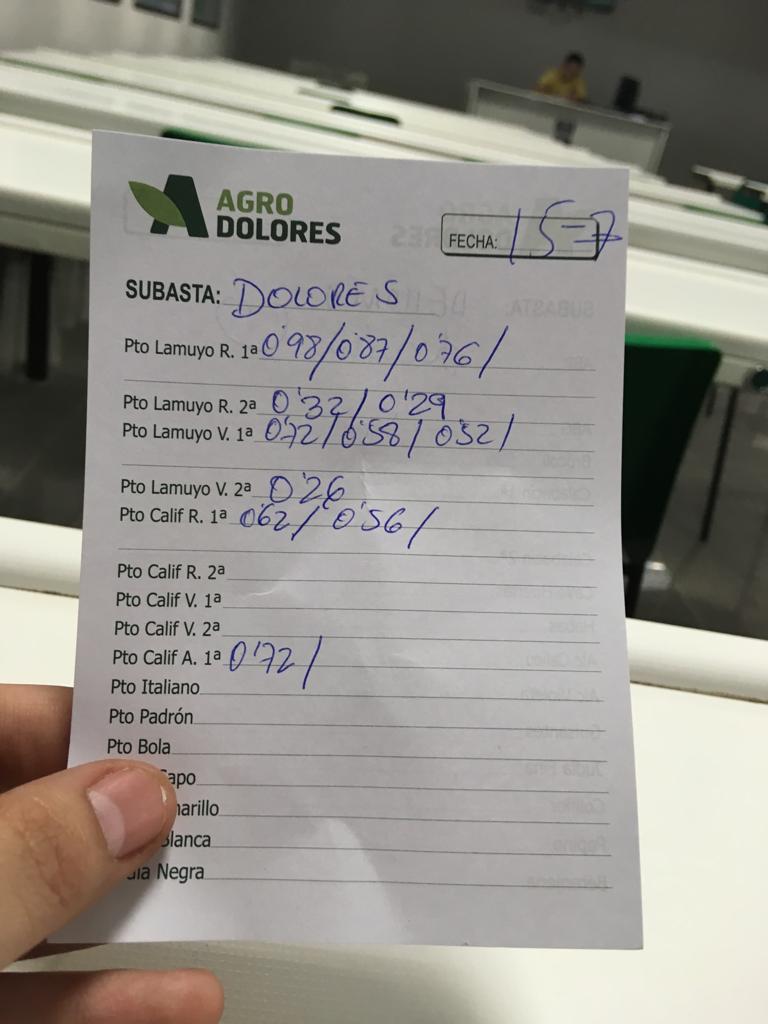 AGRO
DOLORES
FECHA: 15-7
SUBASTA: DOLORES
Pto Lamuyo R. 1ª 0'98/0'87/0'76/
Pto Lamuyo R. 2ª 0'32/0'29
Pto Lamuyo V. 1ª 0'72/0'58/0'52/
Pto Lamuyo V. 2ª 0'26
Pto Calif R. 1ª 0'62/0'56/
Pto Calif R. 2ª
Pto Calif V. 1ª
Pto Calif V. 2ª
Pto Calif A. 1ª 0'72/
Pto Italiano
Pto Padrón
Pto Bola
apo
arillo
Blanca
Negra